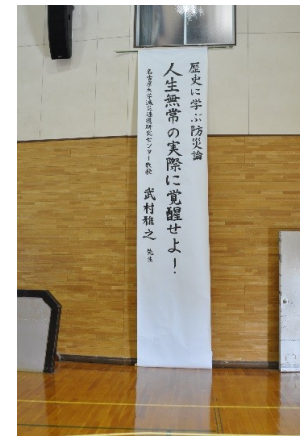 歴史に学ぶ防災論
人生無常の実際に覚醒せよ！
名古屋大学減災連携研究センター教授 武村雅之 先生